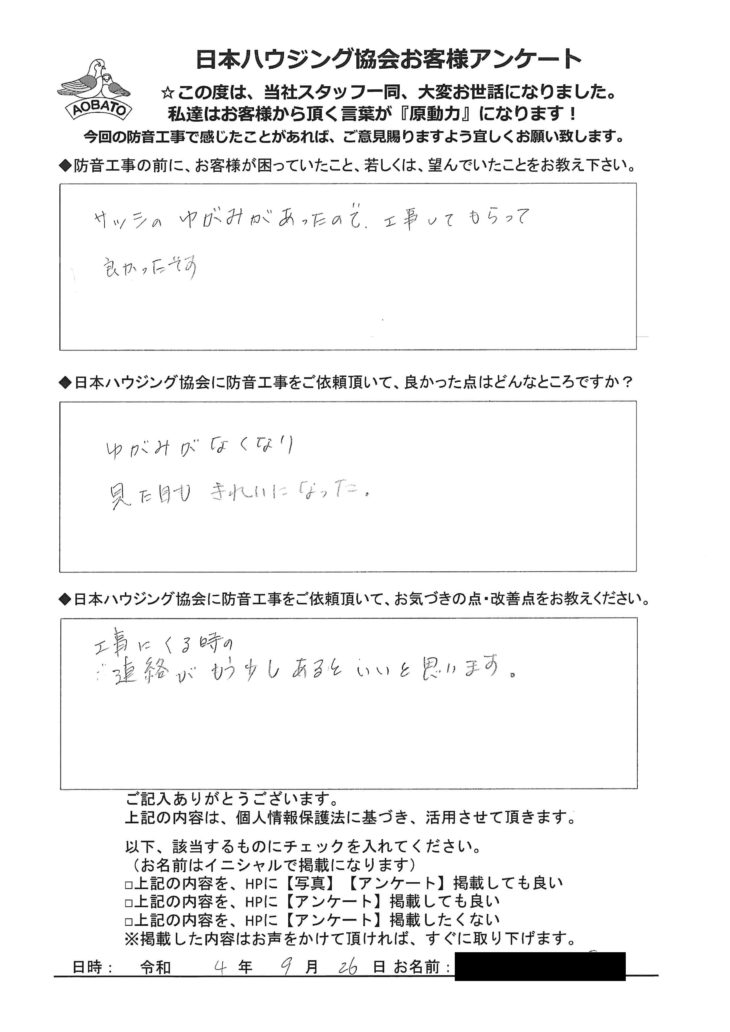 日本ハウジング協会お客様アンケート
AOBATO
☆この度は、当社スタッフ一同、大変お世話になりました。
私達はお客様から頂く言葉が『原動力』になります！
今回の防音工事で感じたことがあれば、ご意見賜りますよう宜しくお願い致します。
◆防音工事の前に、お客様が困っていたこと、若しくは、望んでいたことをお教え下さい。
サッシの ゆがみがあったので、工事してもらって
良かったです
◆日本ハウジング協会に防音工事をご依頼頂いて、良かった点はどんなところですか？
ゆがみがなくなり
見た目もきれいになった。
◆日本ハウジング協会に防音工事をご依頼頂いて、お気づきの点・改善点をお教えください。
工事にくる時の
ご連絡がもう少しあるといいと思います。
ご記入ありがとうございます。
上記の内容は、個人情報保護法に基づき、活用させて頂きます。
以下、該当するものにチェックを入れてください。
（お名前はイニシャルで掲載になります）
□上記の内容を、HPに【写真】【アンケート】掲載しても良い
□上記の内容を、HPに【アンケート】掲載しても良い
□上記の内容を、HPに【アンケート】掲載したくない
※掲載した内容はお声をかけて頂ければ、すぐに取り下げます。
日時： 令和 4 年 9 月 26 日 お名前：